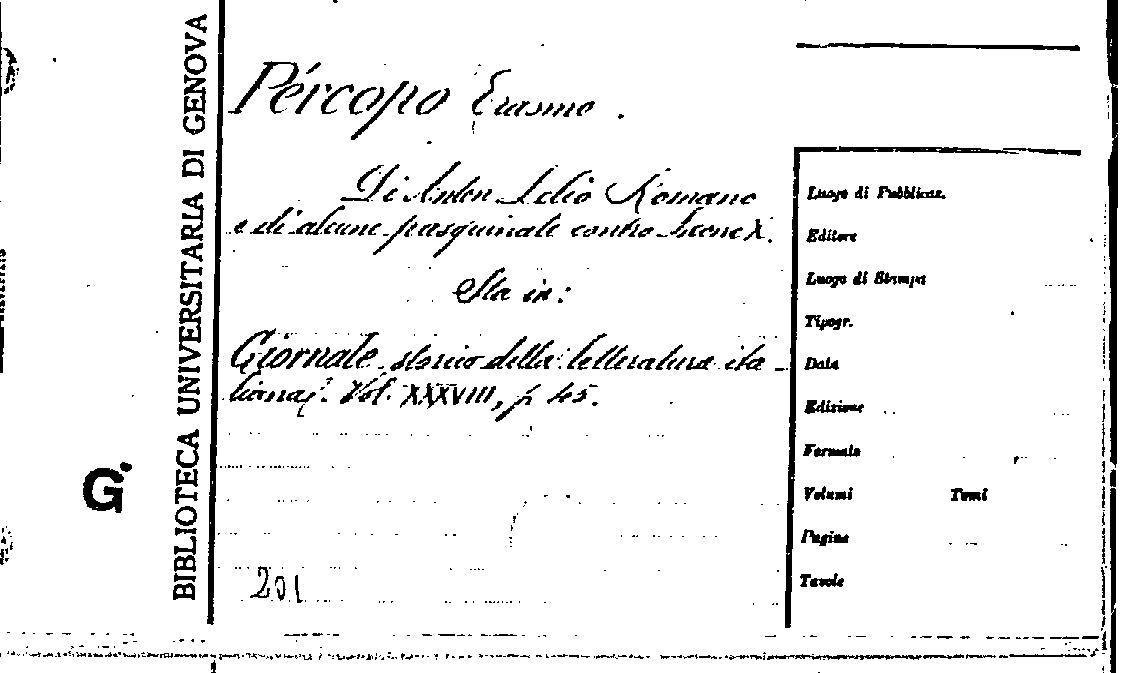 BIBLIOTECA UNIVERSITARIA DI GENOVA
G.
Pércopo Erasmo.
Di Anton Lelio Romano
e di alcune pasquinate contro Leone X.
Sta in:
Giornale storico della letteratura ita-
liana. Vol. XXXVIII, p 45.
201
Luogo di Pubblicaz.
Editore
Luogo di Stampa
Tipogr.
Data
Edizione
Formato
Volumi Tomi
Pagine
Tavole